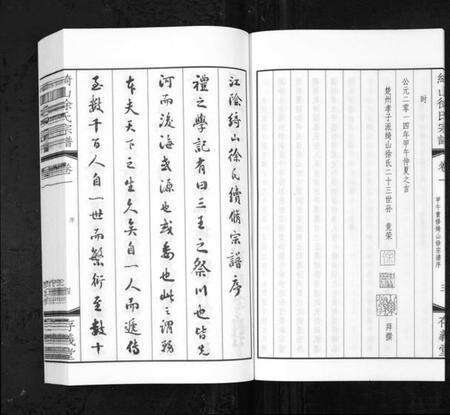 綺山徐氏宗譜
卷一
甲午重修綺山徐宗譜序
三
存義堂
时
公元二零一四年甲午仲夏之吉
楚州孝子派綺山徐氏二十三世孫 竟榮
拜撰
江陰綺山徐氏續修宗譜序
禮之學記有曰三王之祭川也皆先
河而後海或源也或委也此之謂務
本夫天下之生久矣自一人而遞傳
至數千百人自一世而繁衍至數十
綺山徐氏宗譜
卷一
序
存義堂